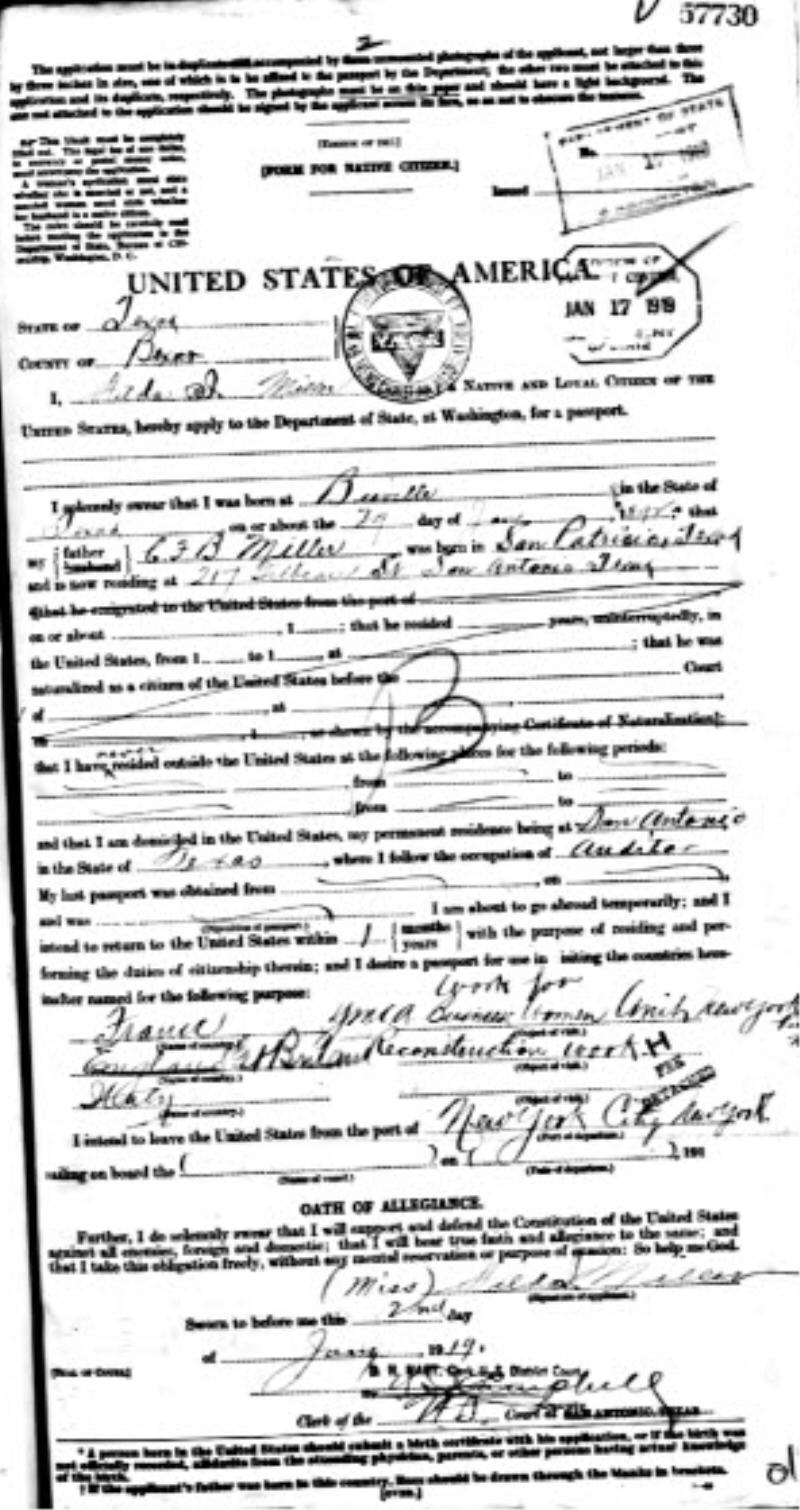 57730
2
The application must be in duplicate and accompanied by three unmounted photographs of the applicant, not larger than three
by three inches in size, one of which is to be affixed to the passport by the Department; the other two must be attached to this
application and its duplicate, respectively. The photographs must be on thin paper and should have a light background. The
one not attached to the application should be signed by the applicant across its face, so as not to obscure the features.
[FORM FOR NATIVE CITIZEN.]
Issued
DEPARTMENT OF STATE
JAN 17 1919
UNITED STATES OF AMERICA.
JAN 17 1919
STATE OF Texas
COUNTY OF Bexar
I, NATIVE AND LOYAL CITIZEN OF THE
UNITED STATES, hereby apply to the Department of State, at Washington, for a passport.
I solemnly swear that I was born at Beeville in the State of
Texas, on or about the 29 day of that
my father husband C F B Miller was born in San Patricio, Texas
and is now residing at 217 St San Antonio Texas
that he emigrated to the United States from the port of
on or about , 1 ; that he resided years, uninterruptedly, in
the United States, from 1 to 1 , at ; that he was
naturalized as a citizen of the United States before the Court
of , at
, 1 , as shown by the accompanying Certificate of Naturalization];
that I have never resided outside the United States at the following places for the following periods:
from to
from to
and that I am domiciled in the United States, my permanent residence being at San Antonio
in the State of Texas, where I follow the occupation of Auditor
My last passport was obtained from , on
and was I am about to go abroad temporarily; and I
(Disposition of passport.)
intend to return to the United States within 1 months years with the purpose of residing and per-
forming the duties of citizenship therein; and I desire a passport for use in visiting the countries here-
inafter named for the following purpose: Work for
France YMCA Business Women Unit, New York
(Name of country.) (Object of visit.)
England Gt Britain Reconstruction work H
(Name of country.) (Object of visit.)
Italy
(Name of country.) (Object of visit.)
I intend to leave the United States from the port of New York City New York
(Port of departure.)
sailing on board the on , 191
(Name of vessel.) (Date of departure.)
OATH OF ALLEGIANCE.
Further, I do solemnly swear that I will support and defend the Constitution of the United States
against all enemies, foreign and domestic; that I will bear true faith and allegiance to the same; and
that I take this obligation freely, without any mental reservation or purpose of evasion: So help me God.
(Miss) Miller
(Signature of applicant.)
Sworn to before me this 2nd day
of Jany 1919.
[SEAL OF COURT.] D. H. HART, Clerk U.S. District Court
Campbell
Clerk of the Court at SAN ANTONIO, TEXAS
* A person born in the United States should submit a birth certificate with his application, or if the birth was
not officially recorded, affidavits from the attending physician, parents, or other persons having actual knowledge
of the birth.
† If the applicant's father was born in this country, lines should be drawn through the blanks in brackets.
[OVER.]